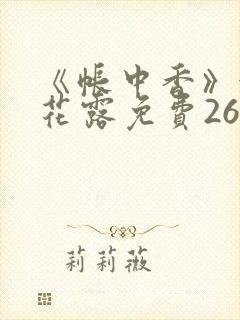 《帐中香》
花露免費26
莉莉薇